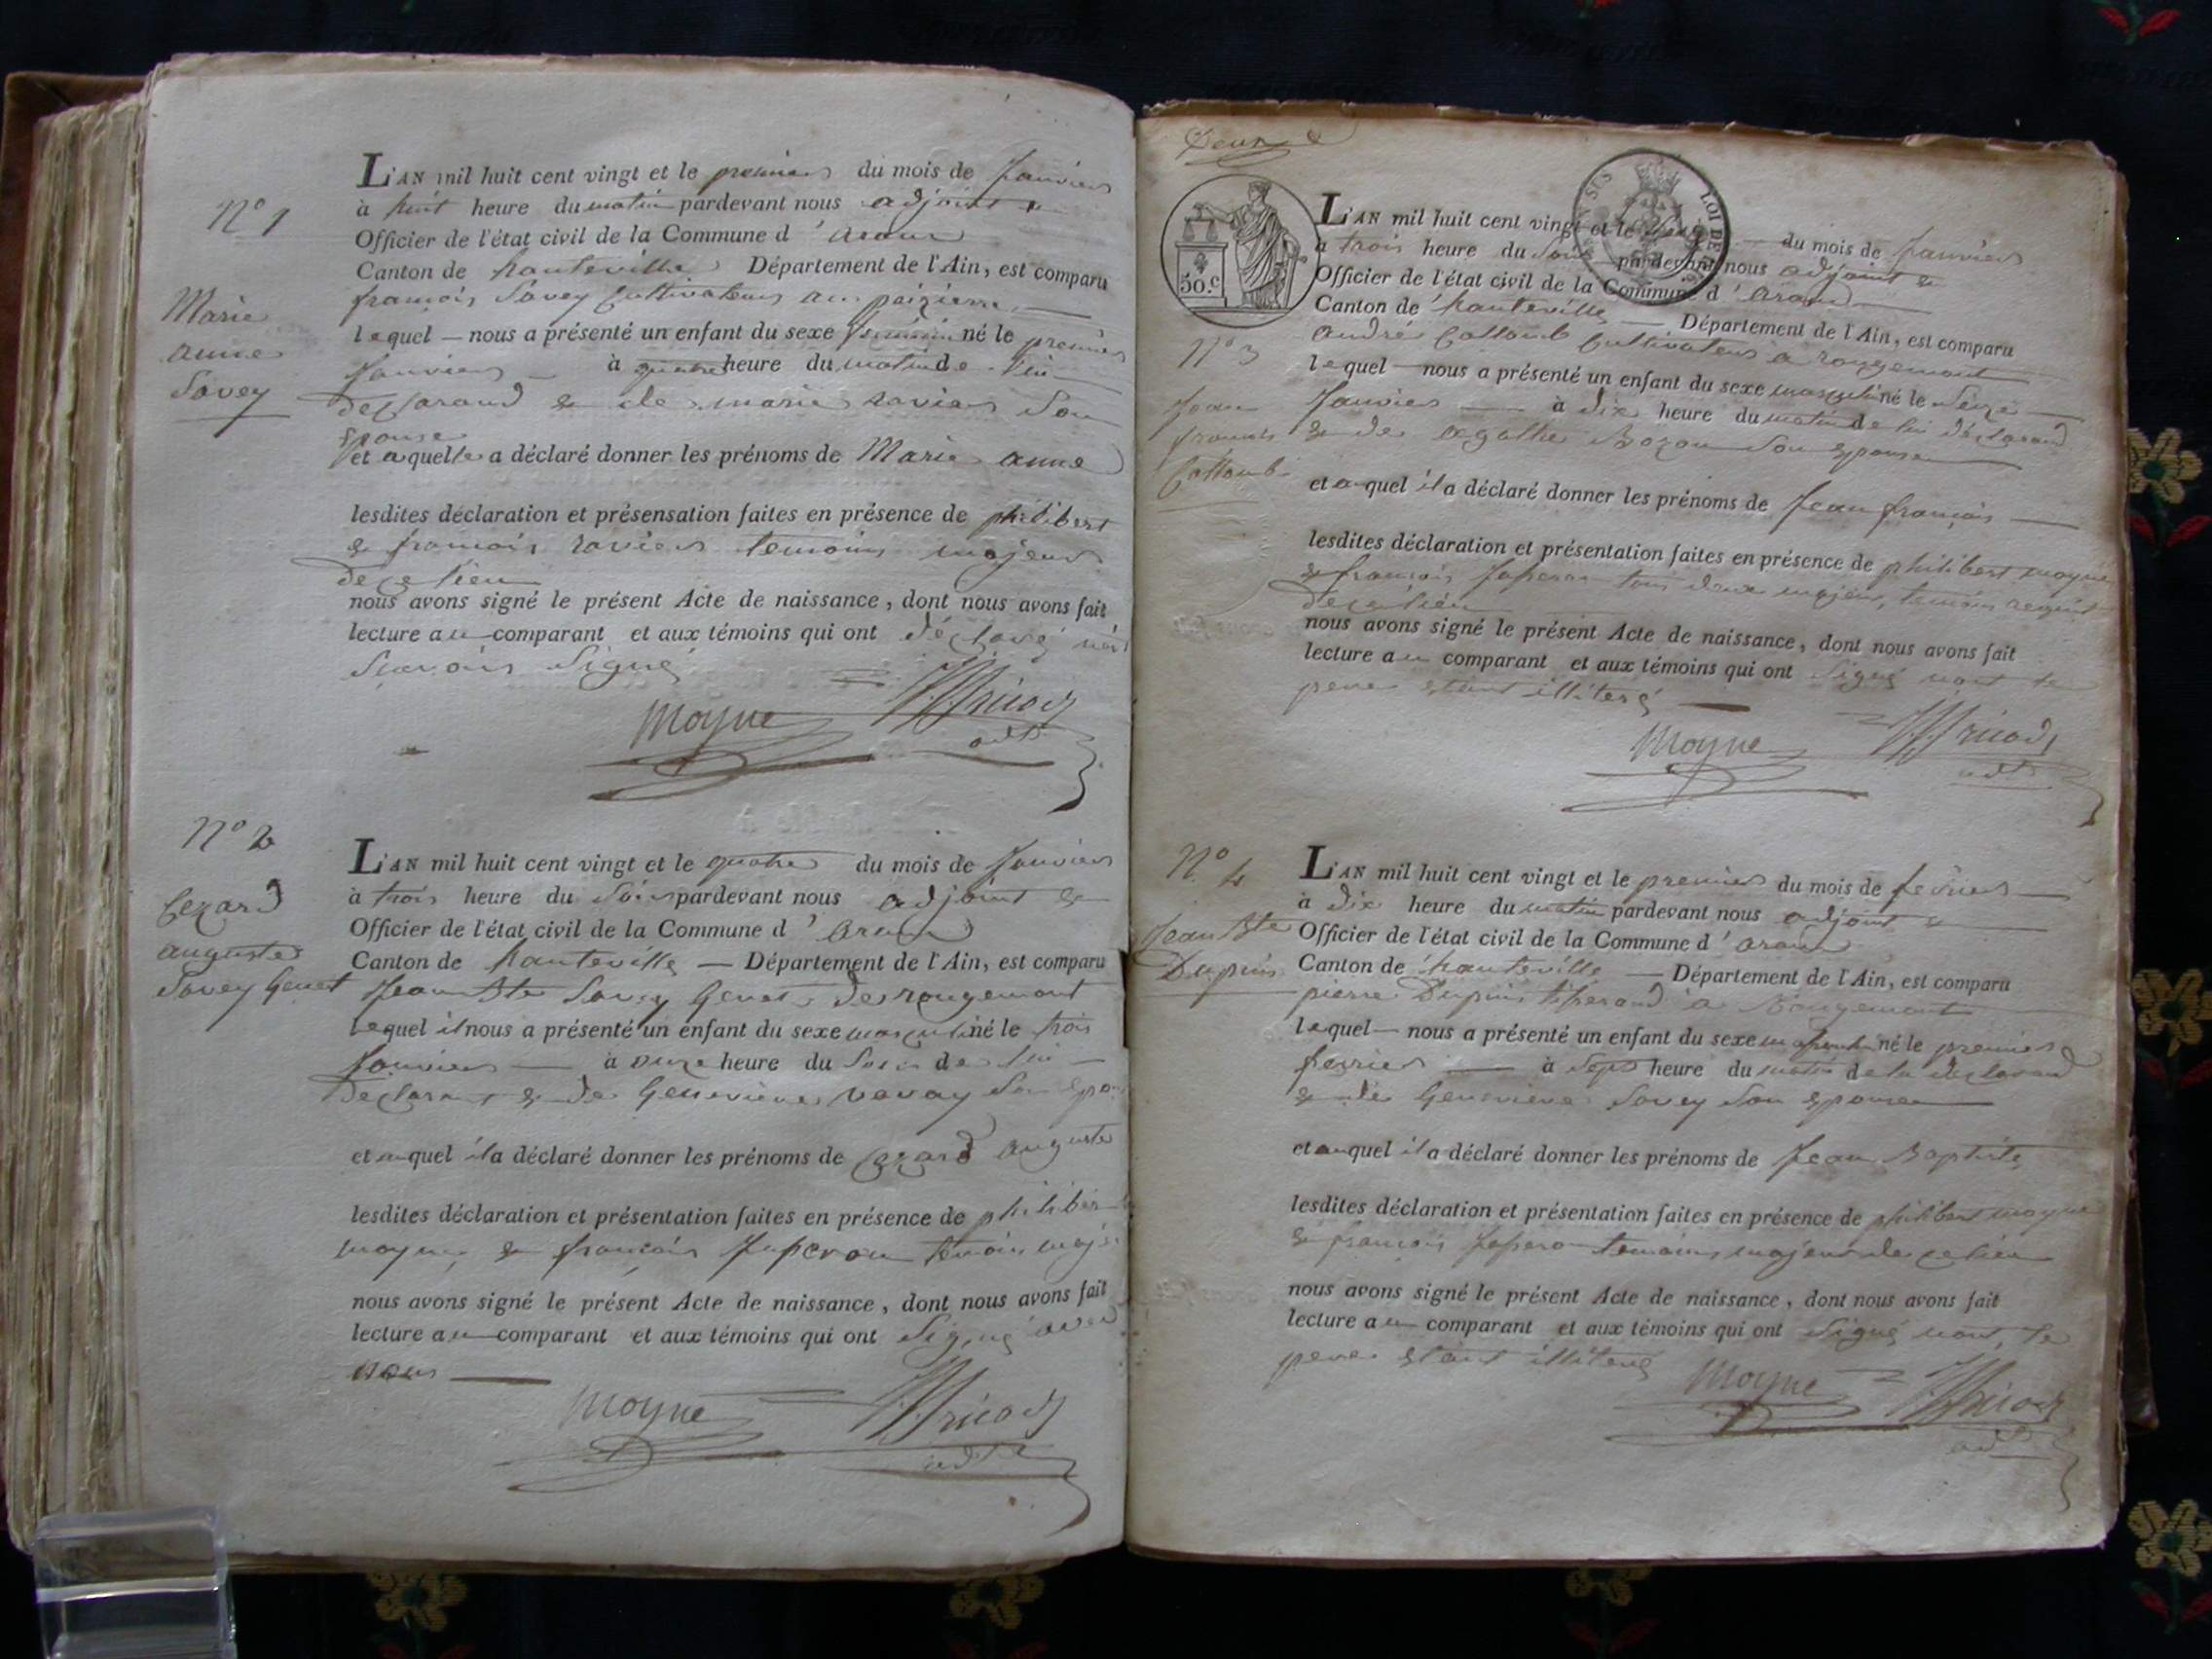 N° 1
Marie
anne
Savey
L'AN mil huit cent vingt et le premier du mois de Janvier
à huit heure du matin pardevant nous adjoint &
Officier de l'état civil de la Commune d'
Canton de hauteville Département de l'Ain, est comparu
francois Savey Cultivateur
lequel — nous a présenté un enfant du sexe feminin né le premier
Janvier — à quatre heure du matin de lui
declarand & de marie ravier Son
epouse
et a quelle a déclaré donner les prénoms de Marie anne
lesdites déclaration et présensation faites en présence de philibert
& francois ravier temoins majeurs
de ce lieu
nous avons signé le présent Acte de naissance, dont nous avons fait
lecture au comparant et aux témoins qui ont déclaré
Scavoir Signé
moyne
adt
N° 2
Cezard
auguste
Savey Genet
L'AN mil huit cent vingt et le quatre du mois de Janvier
à trois heure du Soir pardevant nous adjoint &
Officier de l'état civil de la Commune d' aran
Canton de hauteville — Département de l'Ain, est comparu
Jean Bte Savey Genet de rougemont
lequel il nous a présenté un enfant du sexe masculin né le trois
Janvier — à onze heure du Soir de lui —
Declarant & de Genevieve Son epouse
et auquel il a déclaré donner les prénoms de Cezard auguste
lesdites déclaration et présentation faites en présence de philibert
moyne & francois Jasseron temoin majeur
nous avons signé le présent Acte de naissance, dont nous avons fait
lecture au comparant et aux témoins qui ont Signé avec
nous
moyne
adt
50.c
LOI DE
N° 3
Jean
francois
Collomb
L'AN mil huit cent vingt et le du mois de Janvier
à trois heure du Soir pardevant nous adjoint &
Officier de l'état civil de la Commune d' aran
Canton de hauteville — Département de l'Ain, est comparu
andré Collomb Cultivateur a rougemont
lequel — nous a présenté un enfant du sexe masculin né le Seize
Janvier — à dix heure du matin de lui déclarand
& de agathe Bozon Son epouse
et auquel il a déclaré donner les prénoms de Jean francois
lesdites déclaration et présentation faites en présence de philibert moyne
& francois Jasseron tous deux majeurs, temoins requis
de ce lieu
nous avons signé le présent Acte de naissance, dont nous avons fait
lecture au comparant et aux témoins qui ont Signé nont le
pere etant illiteré
moyne
adt
N° 4
Jean Bte
Dupuis
L'AN mil huit cent vingt et le premier du mois de fevrier
à dix heure du matin pardevant nous adjoint &
Officier de l'état civil de la Commune d' aran
Canton de hauteville — Département de l'Ain, est comparu
pierre Dupuis tisserand a Rougemont
lequel — nous a présenté un enfant du sexe masculin né le premier
fevrier — à Sept heure du matin de lui declarand
& de Genevieve Savey Son epouse
et auquel il a déclaré donner les prénoms de Jean Baptiste
lesdites déclaration et présentation faites en présence de philibert moyne
& francois Jasseron temoins majeurs de ce lieu
nous avons signé le présent Acte de naissance, dont nous avons fait
lecture au comparant et aux témoins qui ont Signé nont, le
pere etant illiteré
moyne
adt